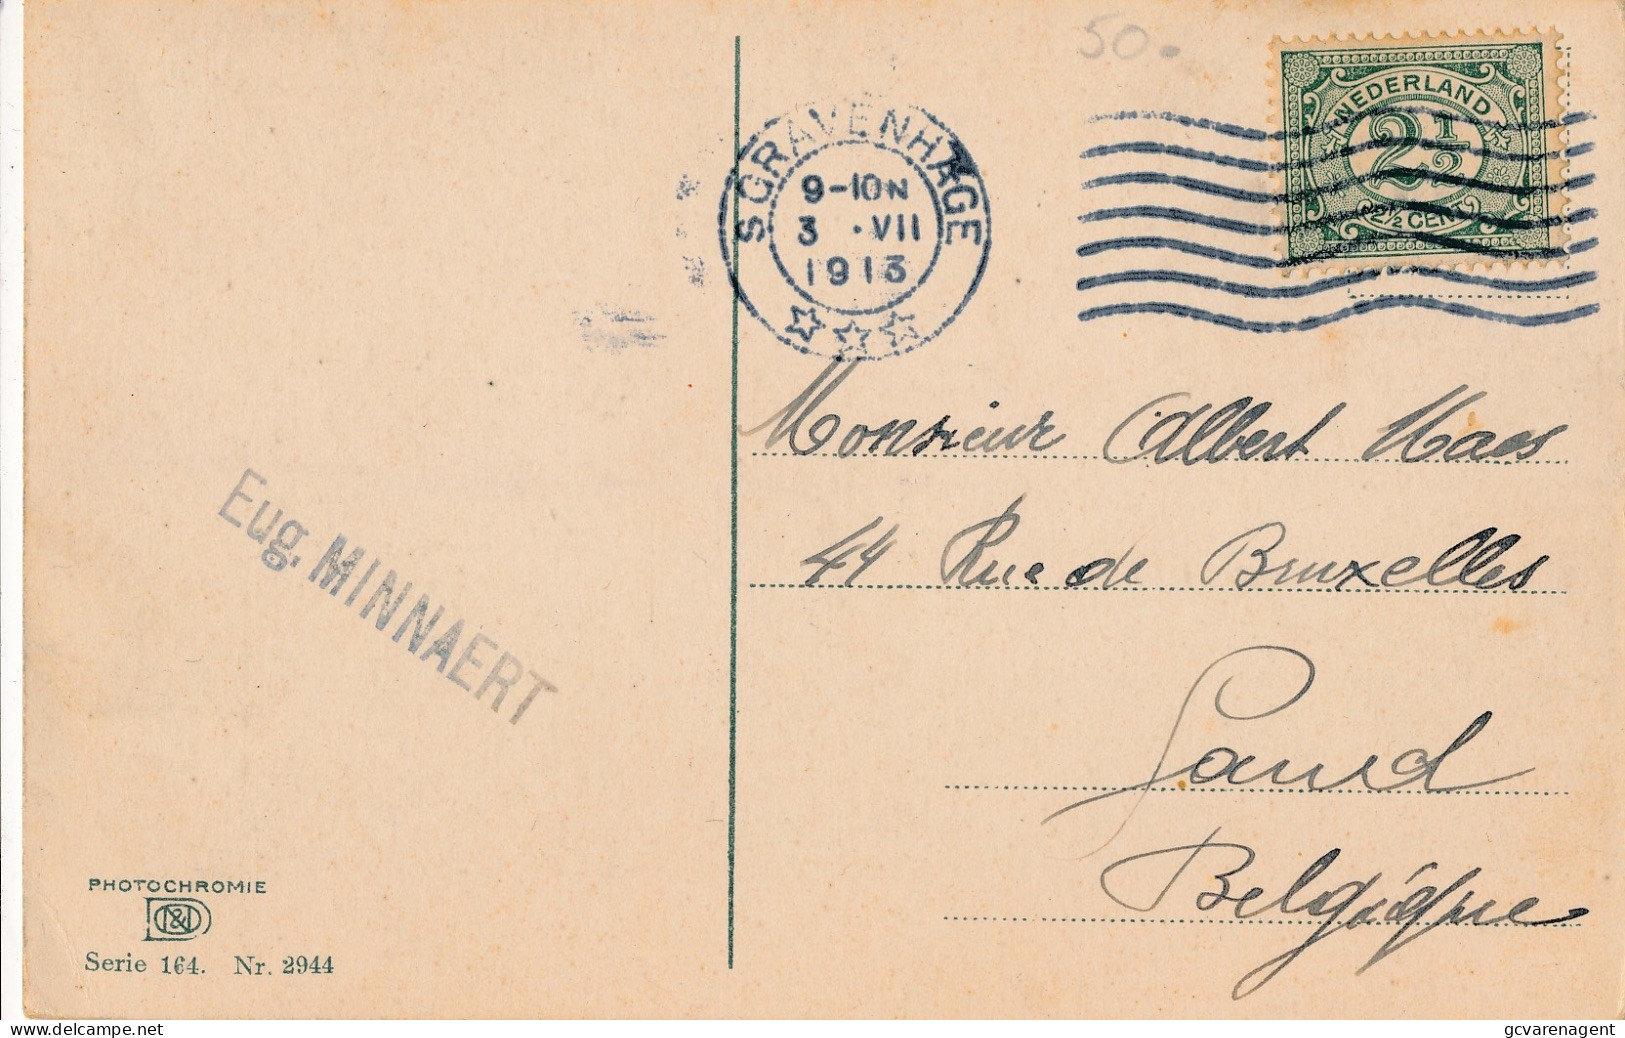 50.-
NEDERLAND
2 1/2
2 1/2 CENT
SGRAVENHAGE
9-10 N
3 . VII
1913
Monsieur Albert Maes
44 Rue de Bruxelles
Gand
Belgique
Eug. MINNAERT
PHOTOCHROMIE
Serie 164. Nr. 2944
delcampe.net
gcvarenagent